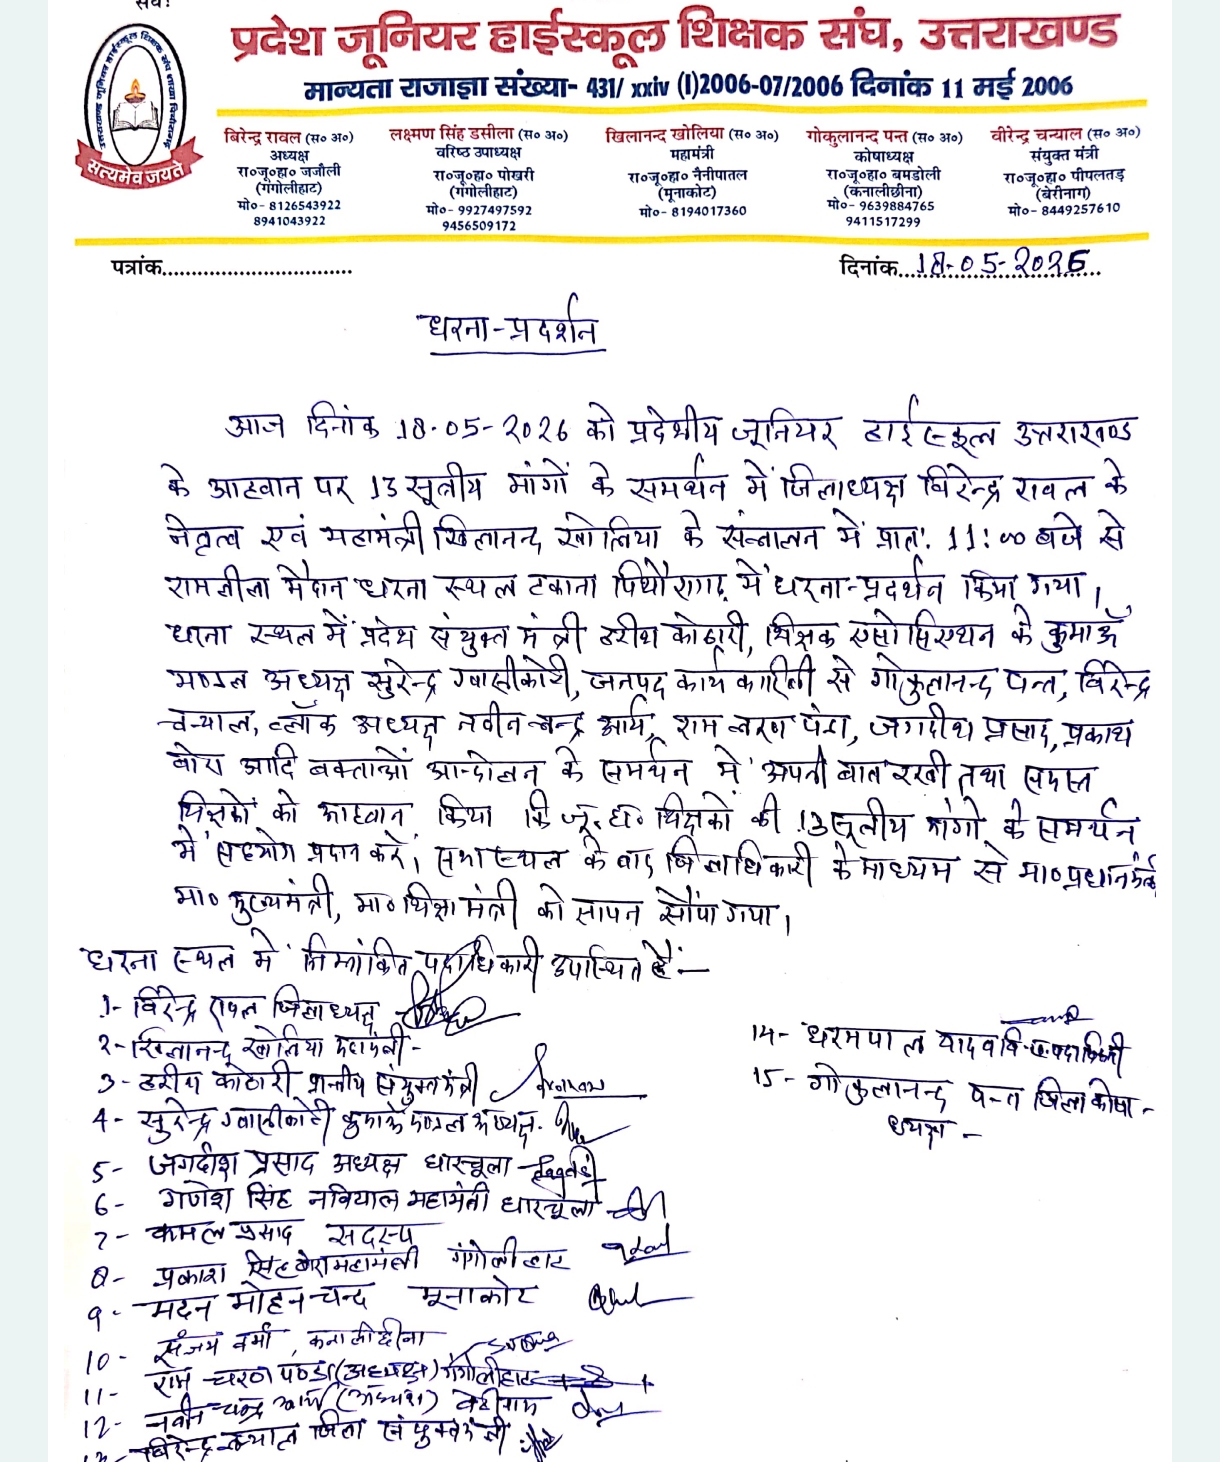 प्रदेश जूनियर हाईस्कूल शिक्षक संघ, उत्तराखण्ड
मान्यता राजाज्ञा संख्या- 431/ xxiv (I)2006-07/2006 दिनांक 11 मई 2006
सत्यमेव जयते
बिरेन्द्र रावल (स० अ०)
अध्यक्ष
रा०जू०हा० जजौली
(गंगोलीहाट)
मो०- 8126543922
8941043922
लक्ष्मण सिंह डसीला (स० अ०)
वरिष्ठ उपाध्यक्ष
रा०जू०हा० पोखरी
(गंगोलीहाट)
मो०- 9927497592
9456509172
खिलानन्द खोलिया (स० अ०)
महामंत्री
रा०जू०हा० नैनीपातल
(मूनाकोट)
मो०- 8194017360
गोकुलानन्द पन्त (स० अ०)
कोषाध्यक्ष
रा०जू०हा० बमडोली
(कनालीछीना)
मो०- 9639884765
9411517299
वीरेन्द्र चन्याल (स० अ०)
संयुक्त मंत्री
रा०जू०हा० पीपलतड़
(बेरीनाग)
मो०- 8449257610
पत्रांक..............................
दिनांक...18-05-2026...
धरना-प्रदर्शन
आज दिनांक 18-05-2026 को प्रदेशीय जूनियर हाईस्कूल उत्तराखण्ड
के आहवान पर 13 सूत्रीय मांगों के समर्थन में जिलाध्यक्ष बिरेन्द्र रावल के
नेतृत्व एवं महामंत्री खिलानन्द खोलिया के संचालन में प्रात: 11:00 बजे से
रामलीला मैदान धरना स्थल टकाना पिथौरागढ़ में धरना-प्रदर्शन किया गया।
धरना स्थल में प्रदेश संयुक्त मंत्री हरीश कोठारी, शिक्षक एसोसिएशन के कुमाऊँ
मण्डल अध्यक्ष सुरेन्द्र ग्वासीकोटी, जनपद कार्यकारिणी से गोकुलानन्द पन्त, बिरेन्द्र
चन्याल, ब्लॉक अध्यक्ष नवीन चन्द्र आर्य, राम चरण पंडा, जगदीश प्रसाद, प्रकाश
बोरा आदि वक्ताओं आन्दोलन के समर्थन में अपनी बात रखी तथा समस्त
शिक्षकों को आहवान किया कि जू.हा० शिक्षकों की 13 सूत्रीय मांगो के समर्थन
में सहयोग प्रदान करें। सभा स्थल के बाद जिलाधिकारी के माध्यम से मा० प्रधानमंत्री
मा० मुख्यमंत्री, मा० शिक्षा मंत्री को ज्ञापन सौंपा गया।
धरना स्थल में निम्नांकित पदाधिकारी उपस्थित हैं:—
1- बिरेन्द्र रावल जिलाध्यक्ष
2- खिलानन्द खोलिया महामंत्री-
3- हरीश कोठारी प्रान्तीय संयुक्त मंत्री
4- सुरेन्द्र ग्वालीकोटी कुमाऊँ मण्डल अध्यक्ष.
5- जगदीश प्रसाद अध्यक्ष धारचूला
6- गणेश सिंह नबियाल महामंत्री धारचूला
7- कमल प्रसाद सदस्य
8- प्रकाश सिंह बोरा महामंत्री गंगोलीहाट
9- मदन मोहन चन्द मूनाकोट
10- संजय वर्मा, कनालीछीना
11- राम चरण पण्डा (अध्यक्ष) गंगोलीहाट
12- नवीन चन्द्र आर्य (अध्यक्ष) बेरीनाग
13- बिरेन्द्र चन्याल जिला संयुक्त मंत्री
14- धरमपाल यादव
15- गोकुलानन्द पन्त जिला कोषा-
ध्यक्ष -